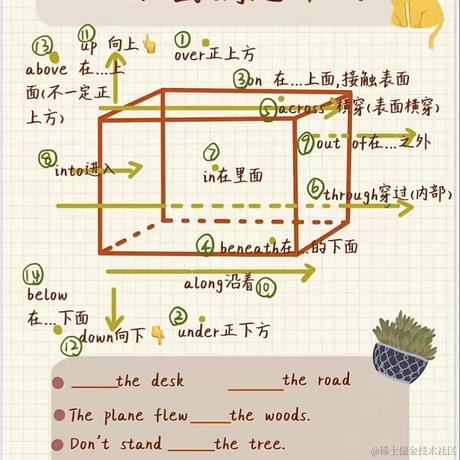 ⑬
⑪
up 向上
①
over正上方
above 在...上
面(不一定正
上方)
③on 在...上面,接触表面
⑤across 横穿(表面横穿)
⑨out of在...之外
⑧into进入
⑦
in在里面
⑥through穿过(内部)
④ beneath在...的下面
along沿着⑩
⑭
below
在...下面
⑫down向下
②
under正下方
_____the desk _____the road
The plane flew_____the woods.
Don't stand _____the tree.
@稀土掘金技术社区